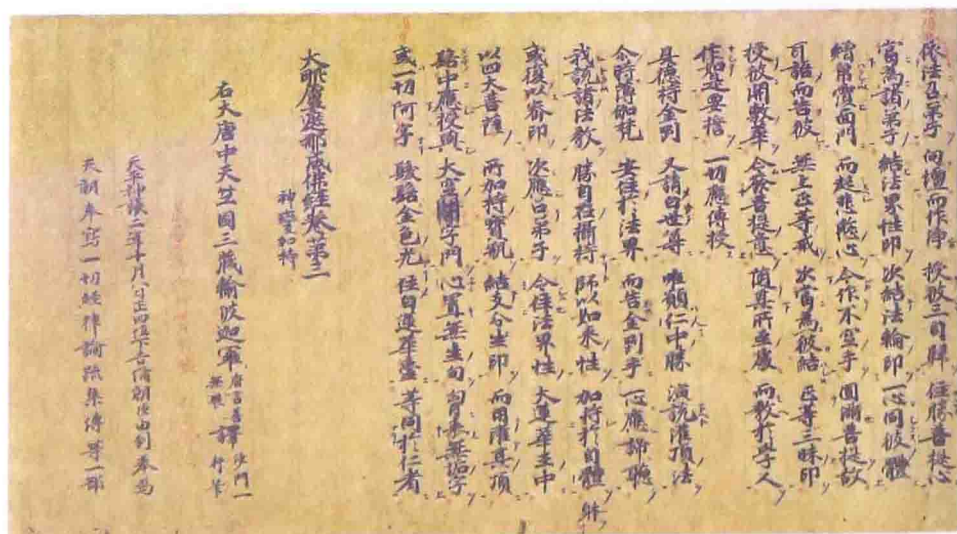 依法召弟子 向壇而作淨 授彼三自歸 住勝菩提心
當為諸弟子 結法界性印 次結法輪印 一心同彼體
繒帛覆面門 而起悲愍心 令作不空手 圓滿菩提故
耳語而告彼 無上正等戒 次當為彼結 正等三昧印
授彼開敷華 令發菩提意 隨其所至處 而教於學人
作如是要誓 一切應傳授
具德持金剛 又請白世尊 唯願仁中勝 演說灌頂法
尒時薄伽梵 安住於法界 而告金剛手 一心應諦聽
我說諸法教 勝自在攝持 師以如來性 加持於自體
或復以密印 次應召弟子 令住法界性 大蓮華王中
以四大菩薩 所加持寶瓶 結支分生印 而用灌其頂
髻中應授與 大空闇字門 心置無生句 胸表無垢字
或一切阿字 髮髻金色光 住白蓮華臺 等同於仁者
大毗盧遮那成佛經卷第三
神變加持
右大唐中天竺國三藏輸波迦羅 唐言善無畏 譯 沙門一行筆
天平神護二年十月八日正四位下吉備朝臣由利奉為
天朝奉寫一切經律論疏集傳等一部